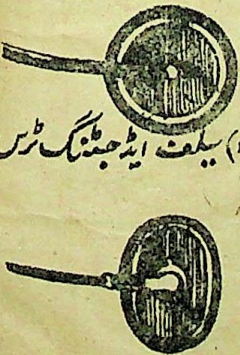 ) سیلف ایڈجسٹنگ ٹرس